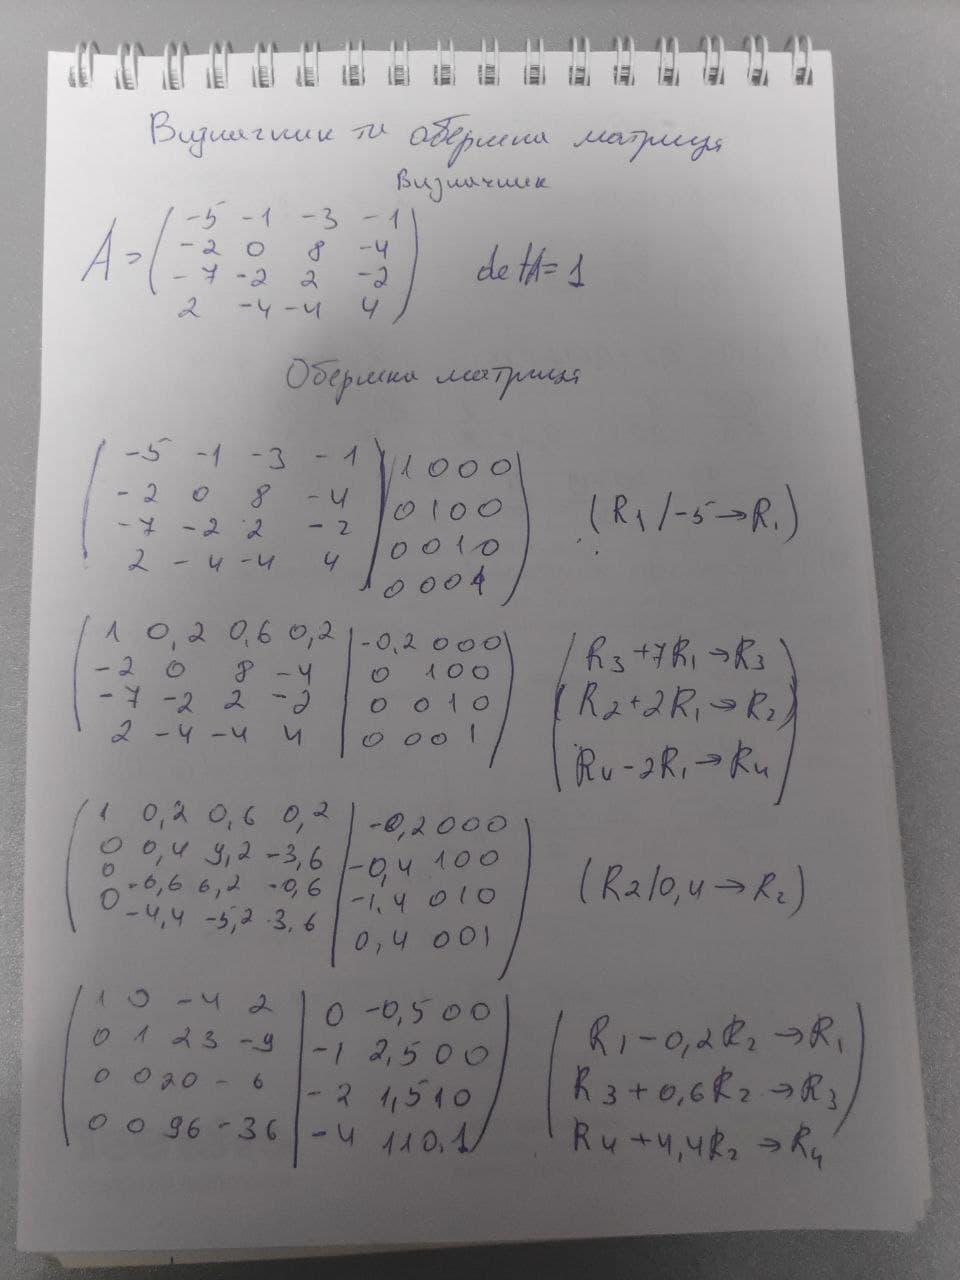 Визначник та обернена матриця
Визначник
A = ( -5 -1 -3 -1
-2 0 8 -4
-7 -2 2 -2
2 -4 -4 4 ) detA = 1
Обернена матриця
( -5 -1 -3 -1 | 1 0 0 0
-2 0 8 -4 | 0 1 0 0
-7 -2 2 -2 | 0 0 1 0
2 -4 -4 4 | 0 0 0 1 ) (R1 / -5 → R1)
( 1 0,2 0,6 0,2 | -0,2 0 0 0
-2 0 8 -4 | 0 1 0 0
-7 -2 2 -2 | 0 0 1 0
2 -4 -4 4 | 0 0 0 1 )
( R3 + 7R1 → R3
R2 + 2R1 → R2
R4 - 2R1 → R4 )
( 1 0,2 0,6 0,2 | -0,2 0 0 0
0 0,4 9,2 -3,6 | -0,4 1 0 0
0 -0,6 6,2 -0,6 | -1,4 0 1 0
0 -4,4 -5,2 3,6 | 0,4 0 0 1 ) (R2 / 0,4 → R2)
( 1 0 -4 2 | 0 -0,5 0 0
0 1 23 -9 | -1 2,5 0 0
0 0 20 -6 | -2 1,5 1 0
0 0 96 -36 | -4 11 0,1 )
( R1 - 0,2R2 → R1
R3 + 0,6R2 → R3
R4 + 4,4R2 → R4 )